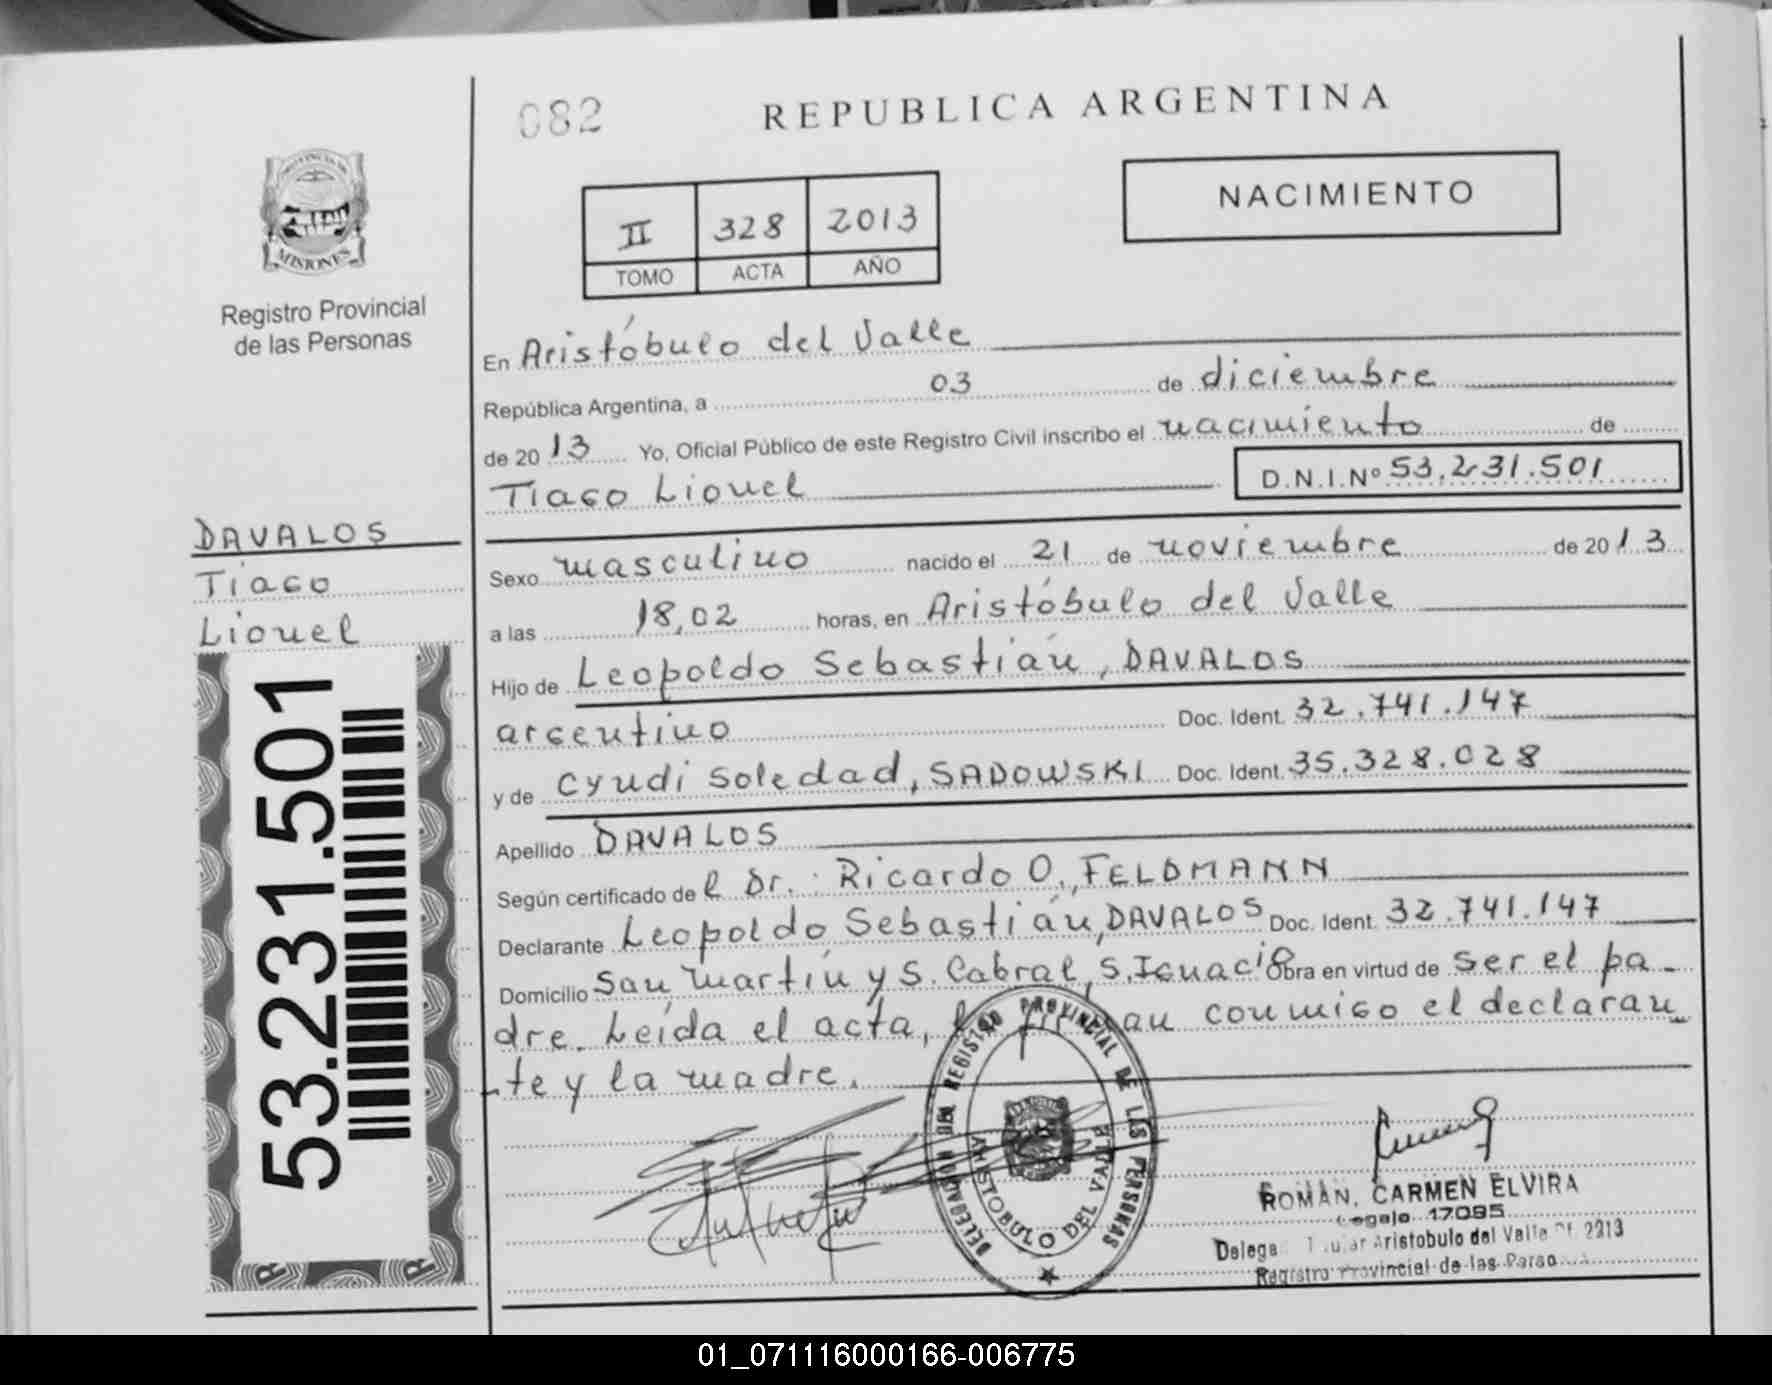 082
REPUBLICA ARGENTINA
PROVINCIA DE
MISIONES
Registro Provincial
de las Personas
II 328 2013
TOMO ACTA AÑO
NACIMIENTO
En Aristóbulo del Valle
República Argentina, a 03 de diciembre
de 2013 Yo, Oficial Público de este Registro Civil inscribo el nacimiento de
Tiago Lionel D.N.I.Nº 53.231.501
DAVALOS
Tiago
Lionel
53.231.501
Sexo masculino nacido el 21 de noviembre de 2013
a las 18,02 horas, en Aristóbulo del Valle
Hijo de Leopoldo Sebastián, DAVALOS
argentino Doc. Ident. 32.741.147
y de Cyndi Soledad, SADOWSKI Doc. Ident. 35.328.028
Apellido DAVALOS
Según certificado del Dr. Ricardo O, FELDMANN
Declarante Leopoldo Sebastián, DAVALOS Doc. Ident. 32.741.147
Domicilio San Martín y S. Cabral, S. Ignacio Obra en virtud de ser el pa-
dre. Leída el acta, conmigo el declaran
-te y la madre.
DELEGACION DEL REGISTRO PROVINCIAL DE LAS PERSONAS
ARISTOBULO DEL VALLE
ROMAN, CARMEN ELVIRA
Legajo 17095
Aristobulo del Valle
Registro Provincial de las
01_071116000166-006775